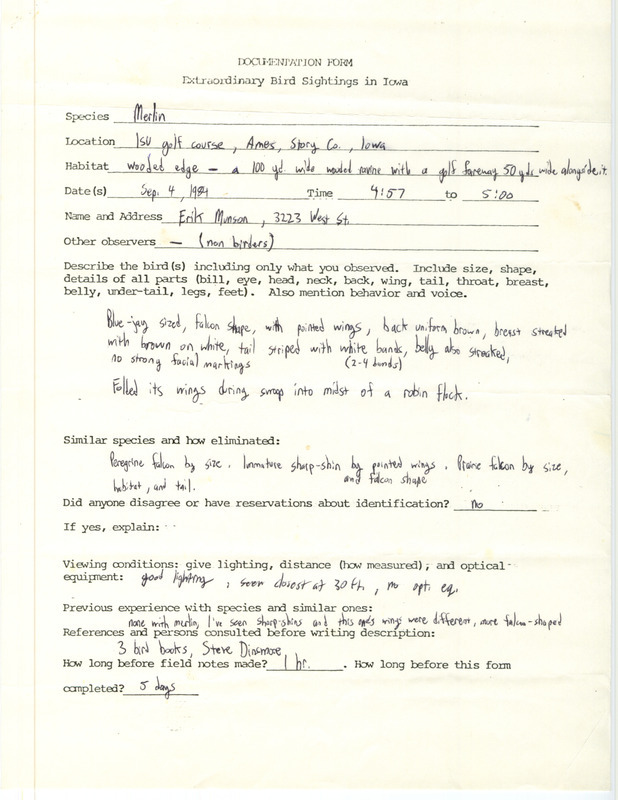 DOCUMENTATION FORM
Extraordinary Bird Sightings in Iowa
Species Merlin
Location ISU golf course, Ames, Story Co., Iowa
Habitat wooded edge - a 100 yd. wide wooded ravine with a golf fareway 50 yds wide alongside it.
Date(s) Sep. 4, 1984 Time 4:57 to 5:00
Name and Address Erik Munson, 3223 West St.
Other observers - (non birders)
Describe the bird(s) including only what you observed. Include size, shape,
details of all parts (bill, eye, head, neck, back, wing, tail, throat, breast,
belly, under-tail, legs, feet). Also mention behavior and voice.
Blue-jay sized, falcon shape, with pointed wings, back uniform brown, breast streaked
with brown on white, tail striped with white bands, belly also streaked,
no strong facial markings (2-4 bands)
Folled its wings during swoop into midst of a robin flock.
Similar species and how eliminated:
Peregrine falcon by size. Immature sharp-shin by pointed wings. Prairie falcon by size,
and falcon shape
habitat, and tail.
Did anyone disagree or have reservations about identification? no
If yes, explain:
Viewing conditions: give lighting, distance (how measured), and optical
equipment: good lighting, seen closest at 30 ft, no opti. eq.
Previous experience with species and similar ones:
none with merlin, I've seen sharp-shins and this one's wings were different, more falcon-shaped
References and persons consulted before writing description:
3 bird books, Steve Dinsmore
How long before field notes made? 1 hr. . How long before this form
completed? 5 days